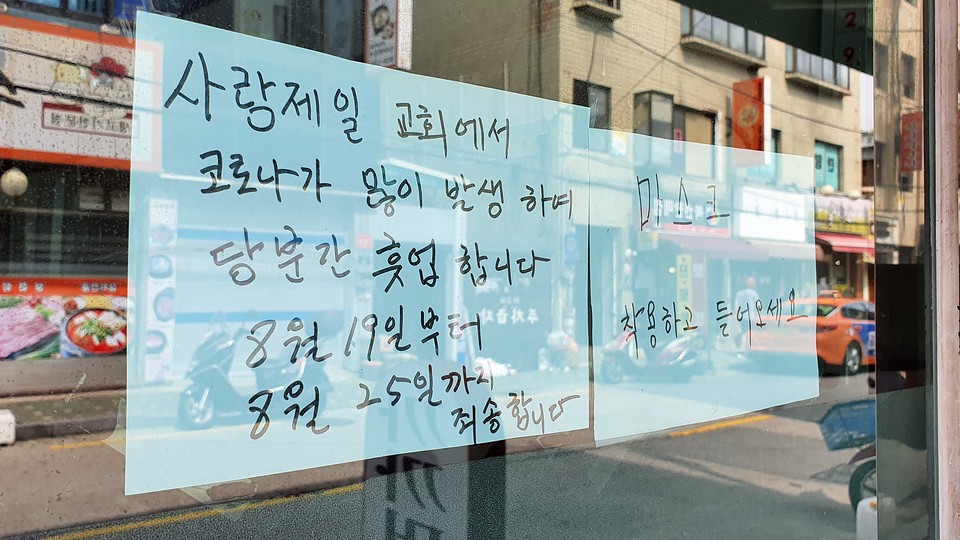 사랑제일 교회에서
코로나가 많이 발생 하여
당분간 휴업 합니다
8월 19일부터
8월 25일까지
죄송합니다
마스크
착용하고 들어오세요